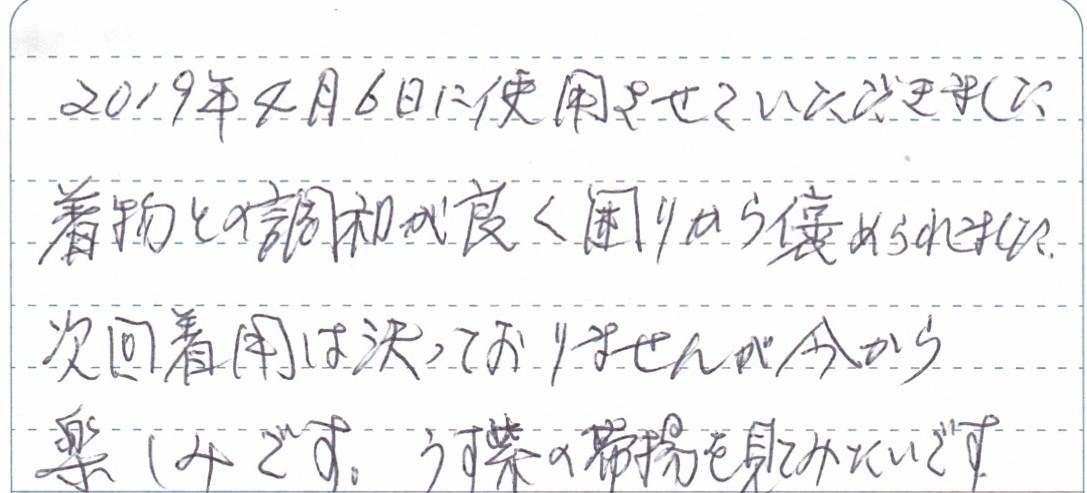 2019年4月6日に使用させていただきました
着物との調和が良く周りから褒められました。
次回着用は決っておりませんが今から
楽しみです。うす紫の帯揚を見てみたいです